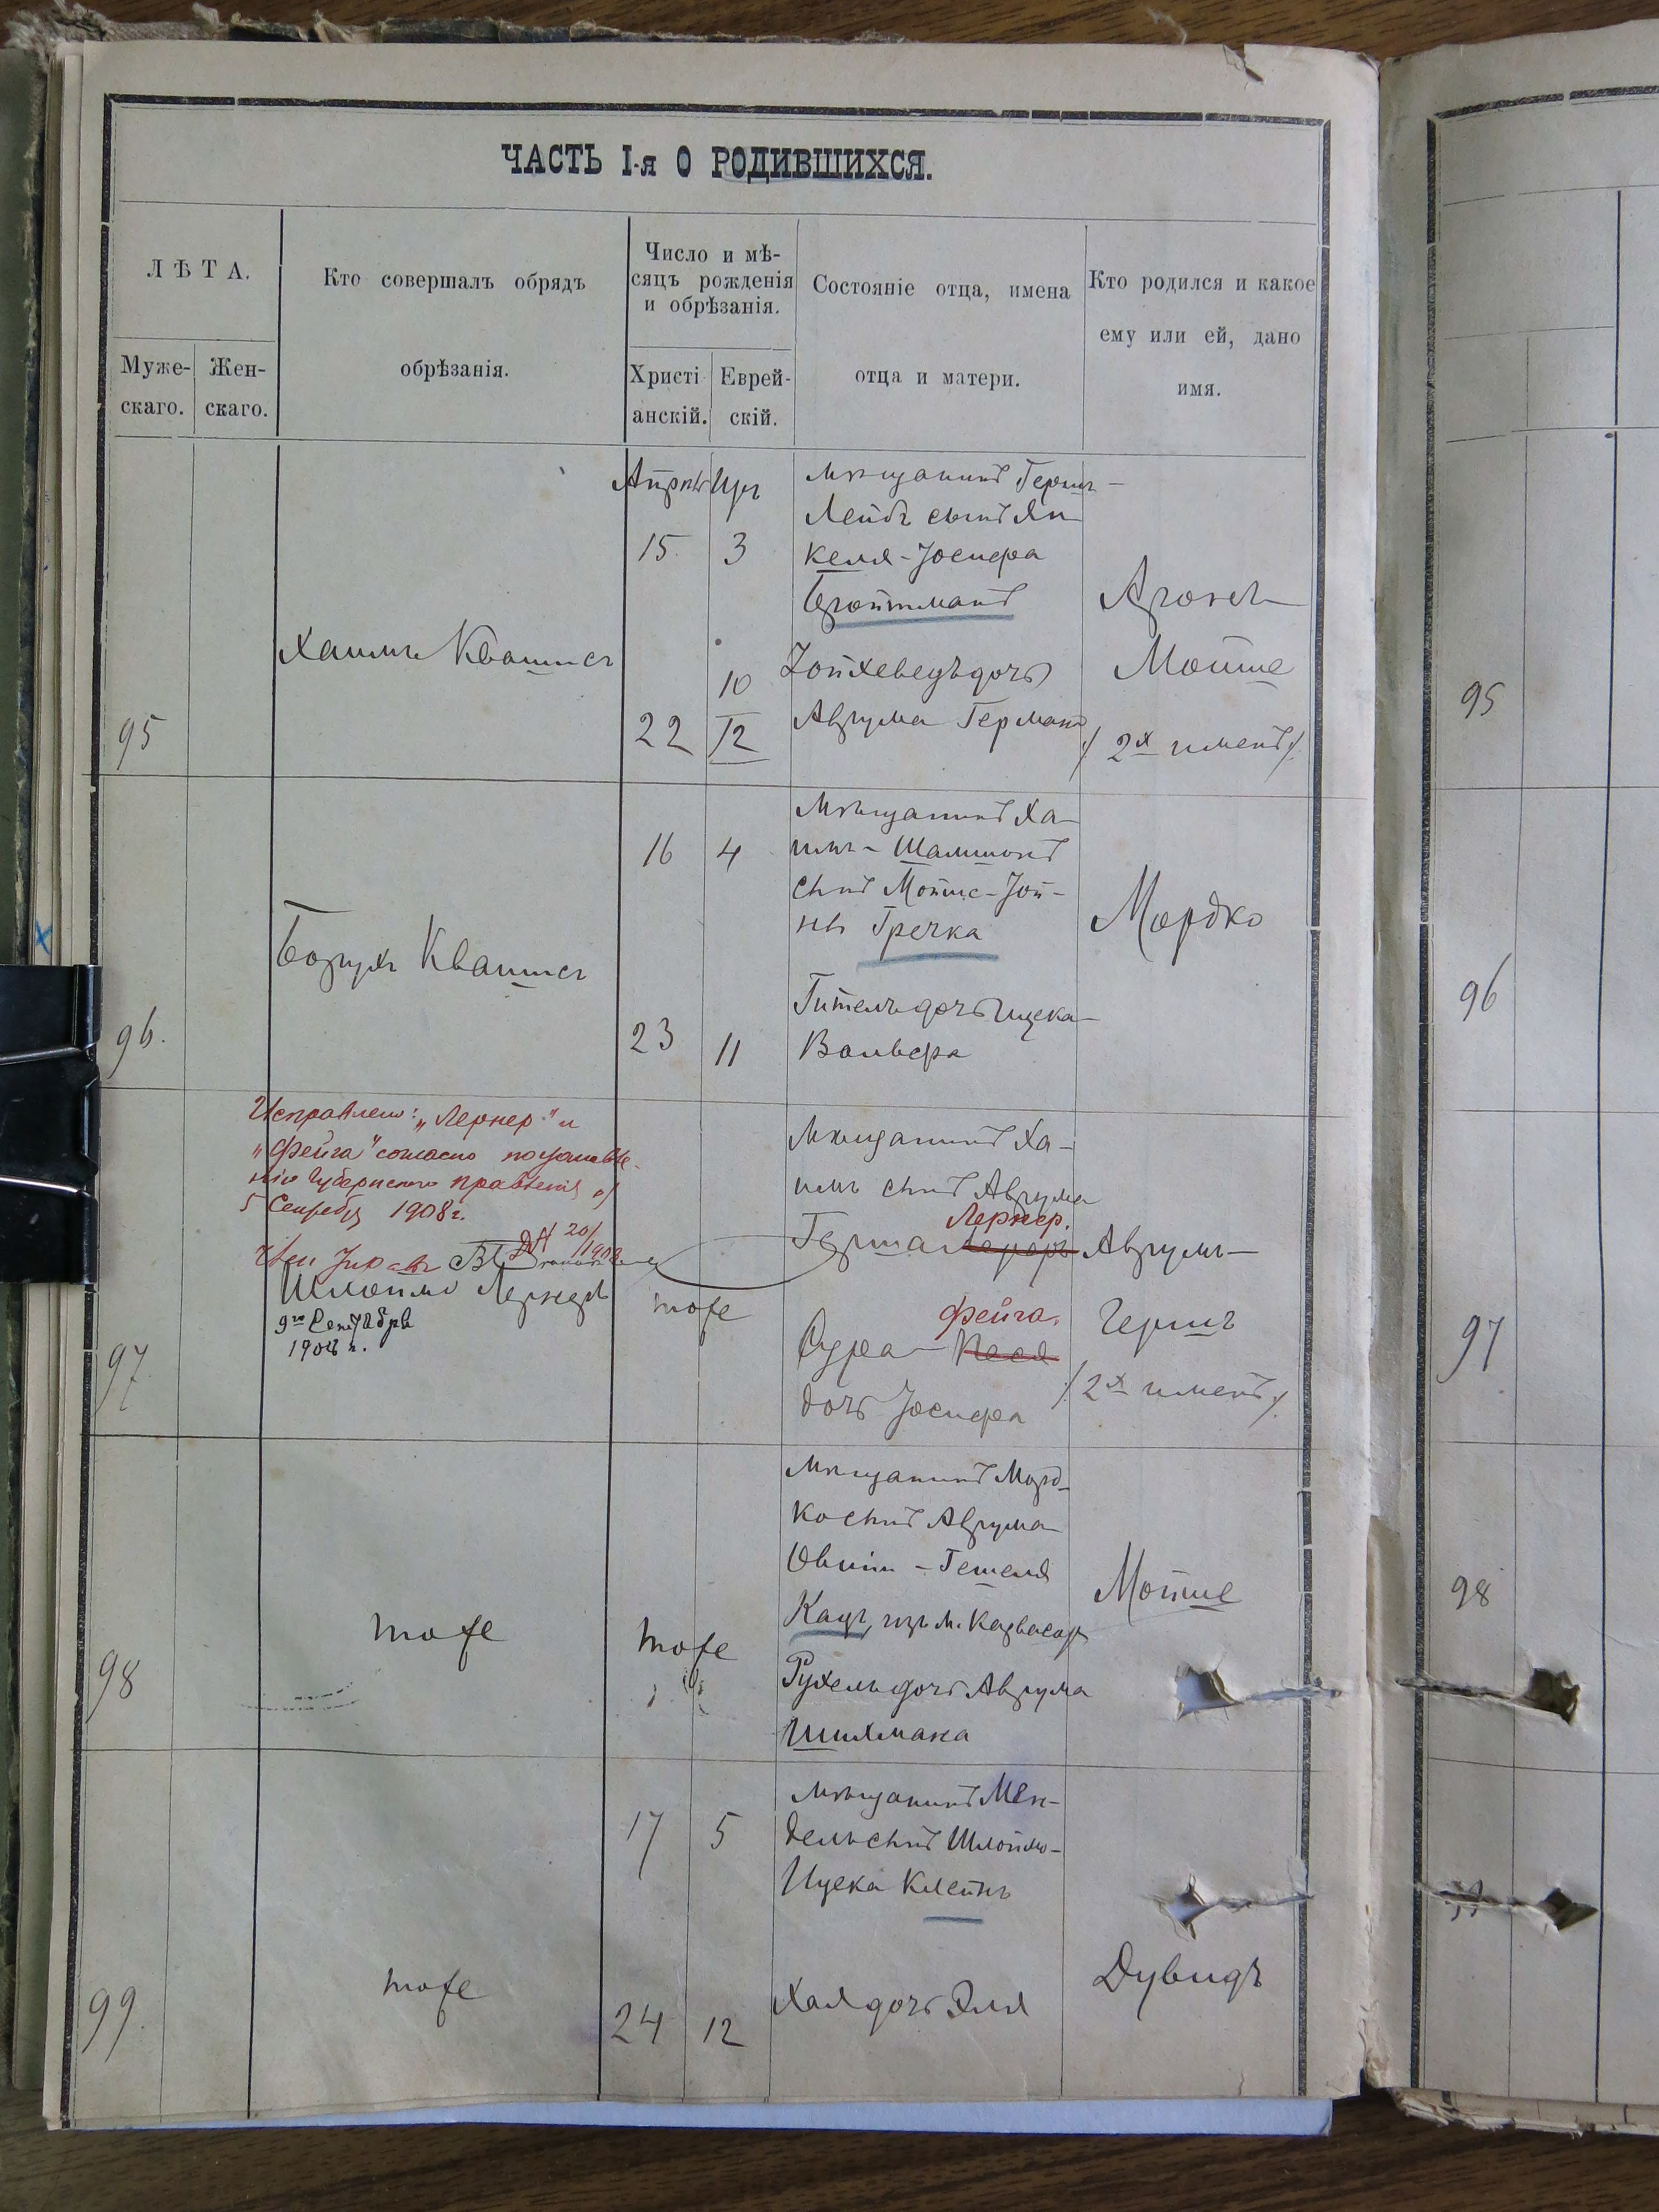 ЧАСТЬ I-я О РОДИВШИХСЯ.
ЛѢТА.
Муже-
скаго.
Жен-
скаго.
Кто совершалъ обрядъ
обрѣзанія.
Число и мѣ-
сяцъ рожденія
и обрѣзанія.
Христі
анскій.
Еврей-
скій.
Состояніе отца, имена
отца и матери.
Кто родился и какое
ему или ей, дано
имя.
95
Хаимъ
15
3
10
22
12
Мѣщанинъ Герш
Лейбъ сынъ Ян
келя-Іосифа
Бройтманъ
дочь
Аврума Герман
Аронъ
Мойше
/2х именъ/.
95
96.
Борухъ
16
4
23
11
Мѣщанинъ Ха
имъ-Шлимонъ
сынъ Мойше-Іой-
ны Гречка
Гитель дочь Ицека
Вольфа
Мордко
96
Исправлено: „Лернер" и
„Фейга" согласно постановле-
нію Губернскаго правленія от
5 Сентября 1908 г.
20/
1908
Шлойма Лернеръ
9го Сентября
1908 г.
97
тоже
Мѣщанинъ Ха
имъ сынъ Аврума
Герша
Лернер.
Фейга.
Сура Песя
дочь Іосифа
Аврумъ
Гершъ
/2х именъ/.
97
98
тоже
тоже
Мѣщанинъ Морд
ко сынъ Аврума
Гешеля
Кацъ, изъ м.
Рухель дочь Аврума
Шихмана
Мойше
98
99.
тоже
17
5
24
12
Мѣщанинъ Мен-
дель сынъ Шлоймо-
Ицека Клейнъ
Хая дочь Эля
Дувидъ